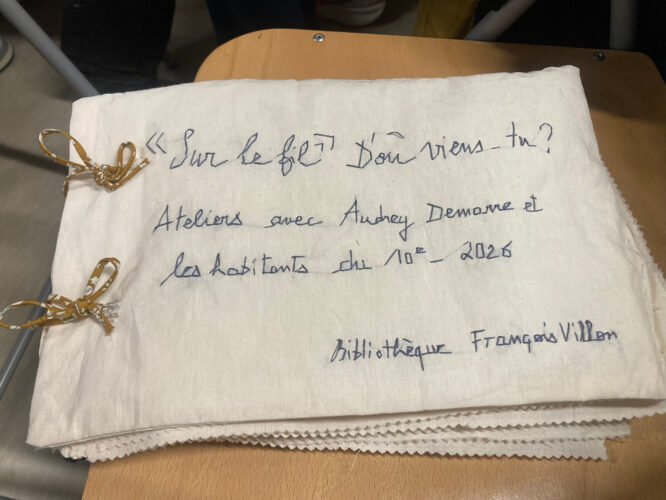 « Sur le fil » D'où viens-tu?
Ateliers avec Audrey Demarre et
les habitants du 10e - 2026
Bibliothèque François Villon